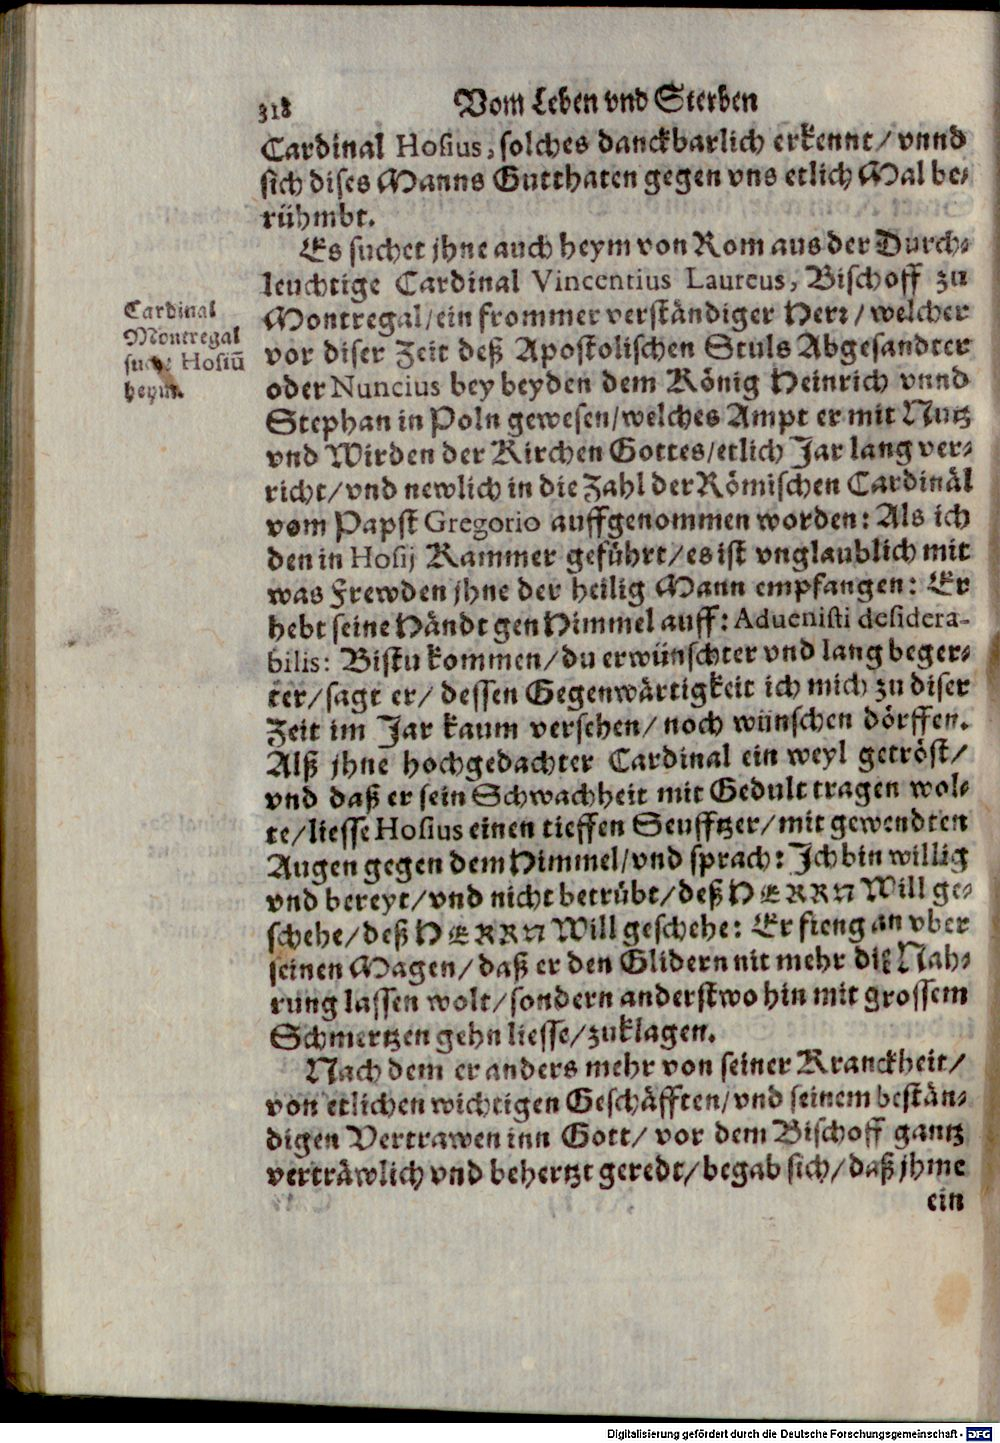 318
Vom Leben vnd Sterben
Cardinal Hosius, solches danckbarlich erkennt/ vnnd
sich dises Manns Gutthaten gegen vns etlich Mal be-
rühmbt.
Es suchet jhne auch heym von Rom aus der Durch-
leuchtige Cardinal Vincentius Laureus, Bischoff zu
Montregal/ ein frommer verständiger Herr/ welcher
vor diser Zeit deß Apostolischen Stuls Abgesandter
oder Nuncius bey beyden dem König Heinrich vnnd
Stephan in Poln gewesen/ welches Ampt er mit Nutz
vnd Wirden der Kirchen Gottes/ etlich Jar lang ver-
richt/ vnd newlich in die Zahl der Römischen Cardinäl
vom Papst Gregorio auffgenommen worden: Als ich
den in Hosij Kammer geführt/ es ist vnglaublich mit
was Frewden jhne der heilig Mann empfangen: Er
hebt seine Händt gen Himmel auff: Aduenisti desidera-
bilis: Bistu kommen/ du erwünschter vnd lang beger-
ter/ sagt er/ dessen Gegenwärtigkeit ich mich zu diser
Zeit im Jar kaum versehen/ noch wünschen dörffen.
Alß jhne hochgedachter Cardinal ein weyl getröst/
vnd daß er sein Schwachheit mit Gedult tragen wol-
te/ liesse Hosius einen tieffen Seufftzer/ mit gewendten
Augen gegen dem Himmel/ vnd sprach: Ich bin willig
vnd bereyt/ vnd nicht betrübt/ deß HERRN Will ge-
schehe/ deß HERRN Will geschehe: Er fieng an vber
seinen Magen/ daß er den Glidern nit mehr die Nah-
rung lassen wolt/ sondern anderstwo hin mit grossem
Schmertzen gehn liesse/ zuklagen.
Nach dem er anders mehr von seiner Kranckheit/
von etlichen wichtigen Geschäfften/ vnd seinem bestän-
digen Vertrawen inn Gott/ vor dem Bischoff gantz
verträwlich vnd behertzt geredt/ begab sich/ daß jhme
ein
Cardinal
Montregal
sucht Hosiū
heym.
Digitalisierung gefördert durch die Deutsche Forschungsgemeinschaft - DFG